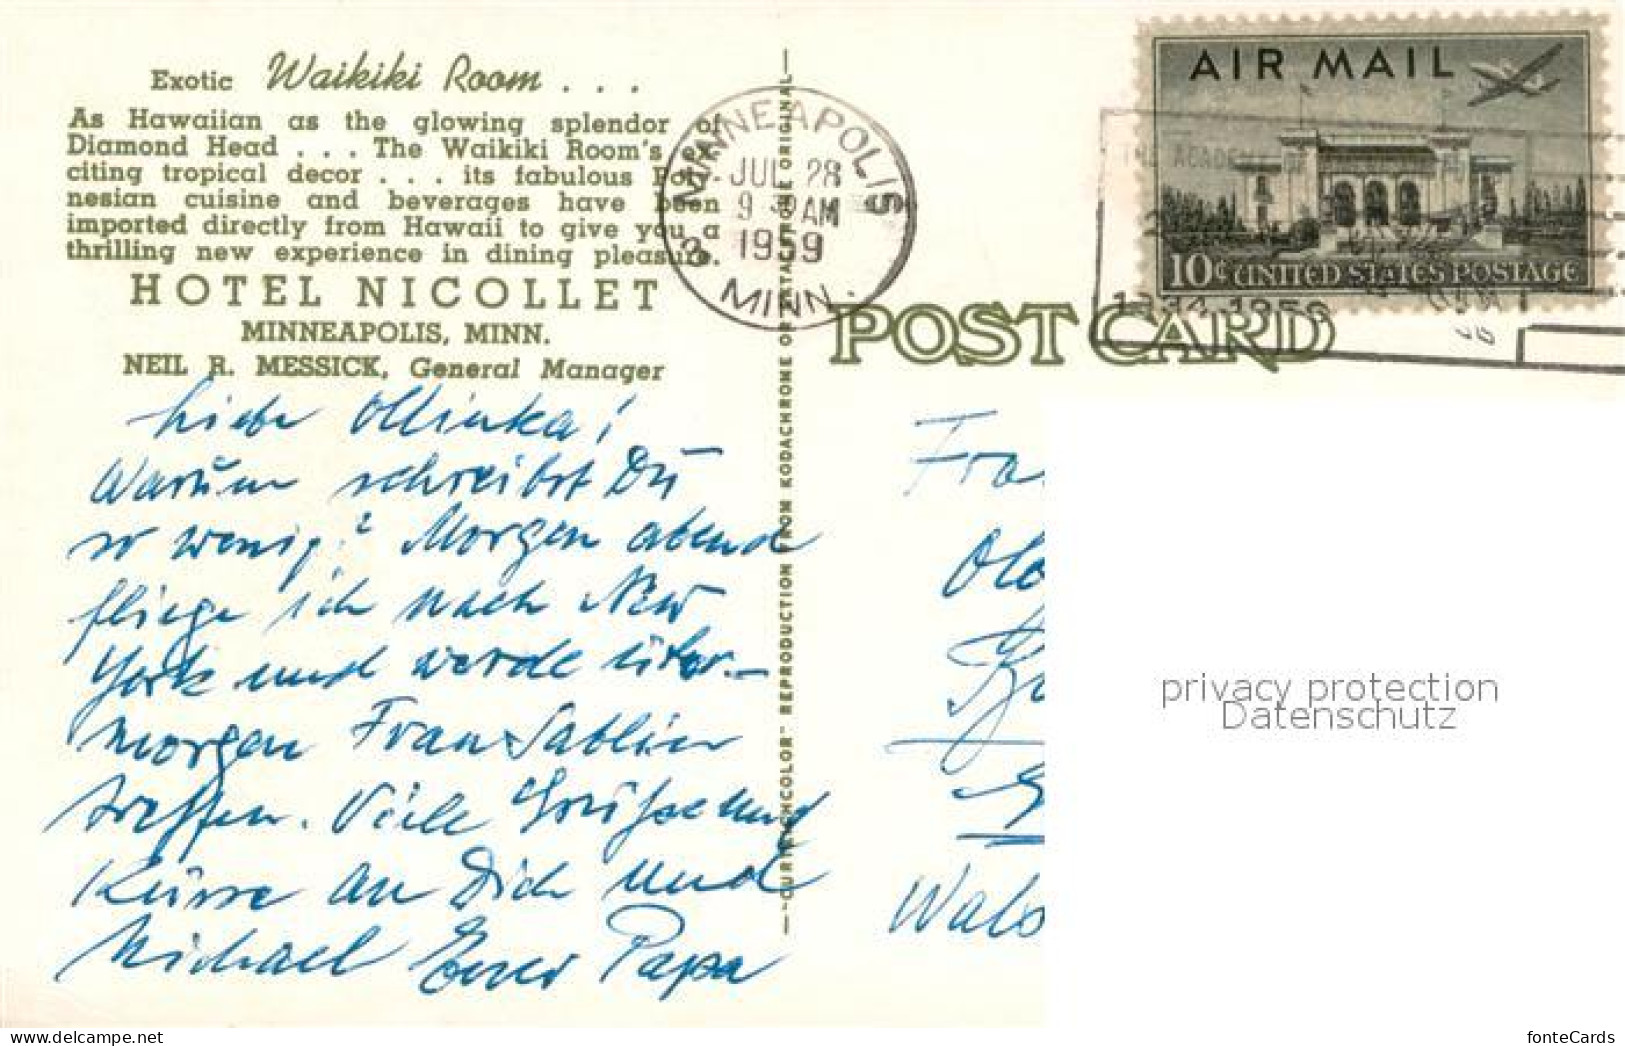 Exotic Waikiki Room . . .
As Hawaiian as the glowing splendor of
Diamond Head . . . The Waikiki Room's ex-
citing tropical decor . . . its fabulous Poly-
nesian cuisine and beverages have been
imported directly from Hawaii to give you a
thrilling new experience in dining pleasure.
HOTEL NICOLLET
MINNEAPOLIS, MINN.
NEIL R. MESSICK, General Manager
Liebe Ollinka!
Warum schreibst Du
so wenig? Morgen abend
fliege ich nach New
York und werde über-
morgen Frau Sablin
treffen. Viele Grüße und
Küsse an Dich und
Michael Euer Papa
"CURTEICHCOLOR" REPRODUCTION FROM KODACHROME OR EKTACHROME ORIGINAL
MINNEAPOLIS
JUL 28
AM
1959
MINN.
AIR MAIL
10¢ UNITED STATES POSTAGE
POST CARD
Fra
privacy protection
Datenschutz
https://www.delcampe.net/en_US/collectibles/
fonteCards